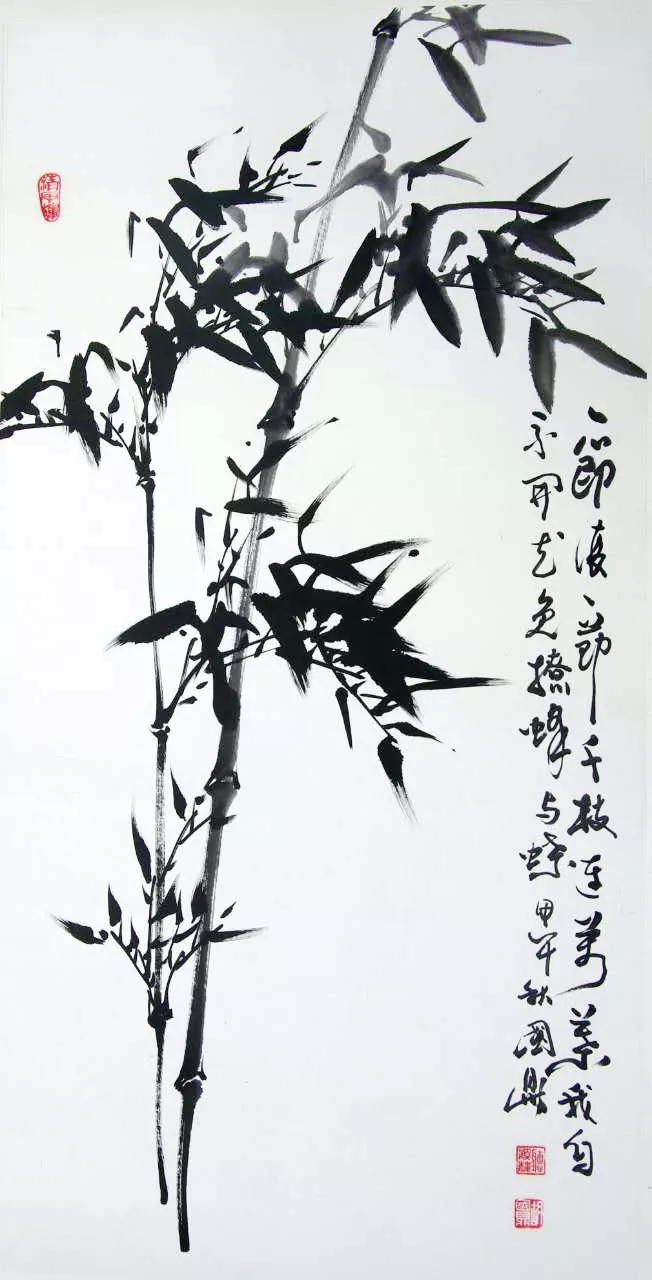 一節復一節千枝連萬葉我自
不開花免撩蜂与蝶甲午秋國鼎